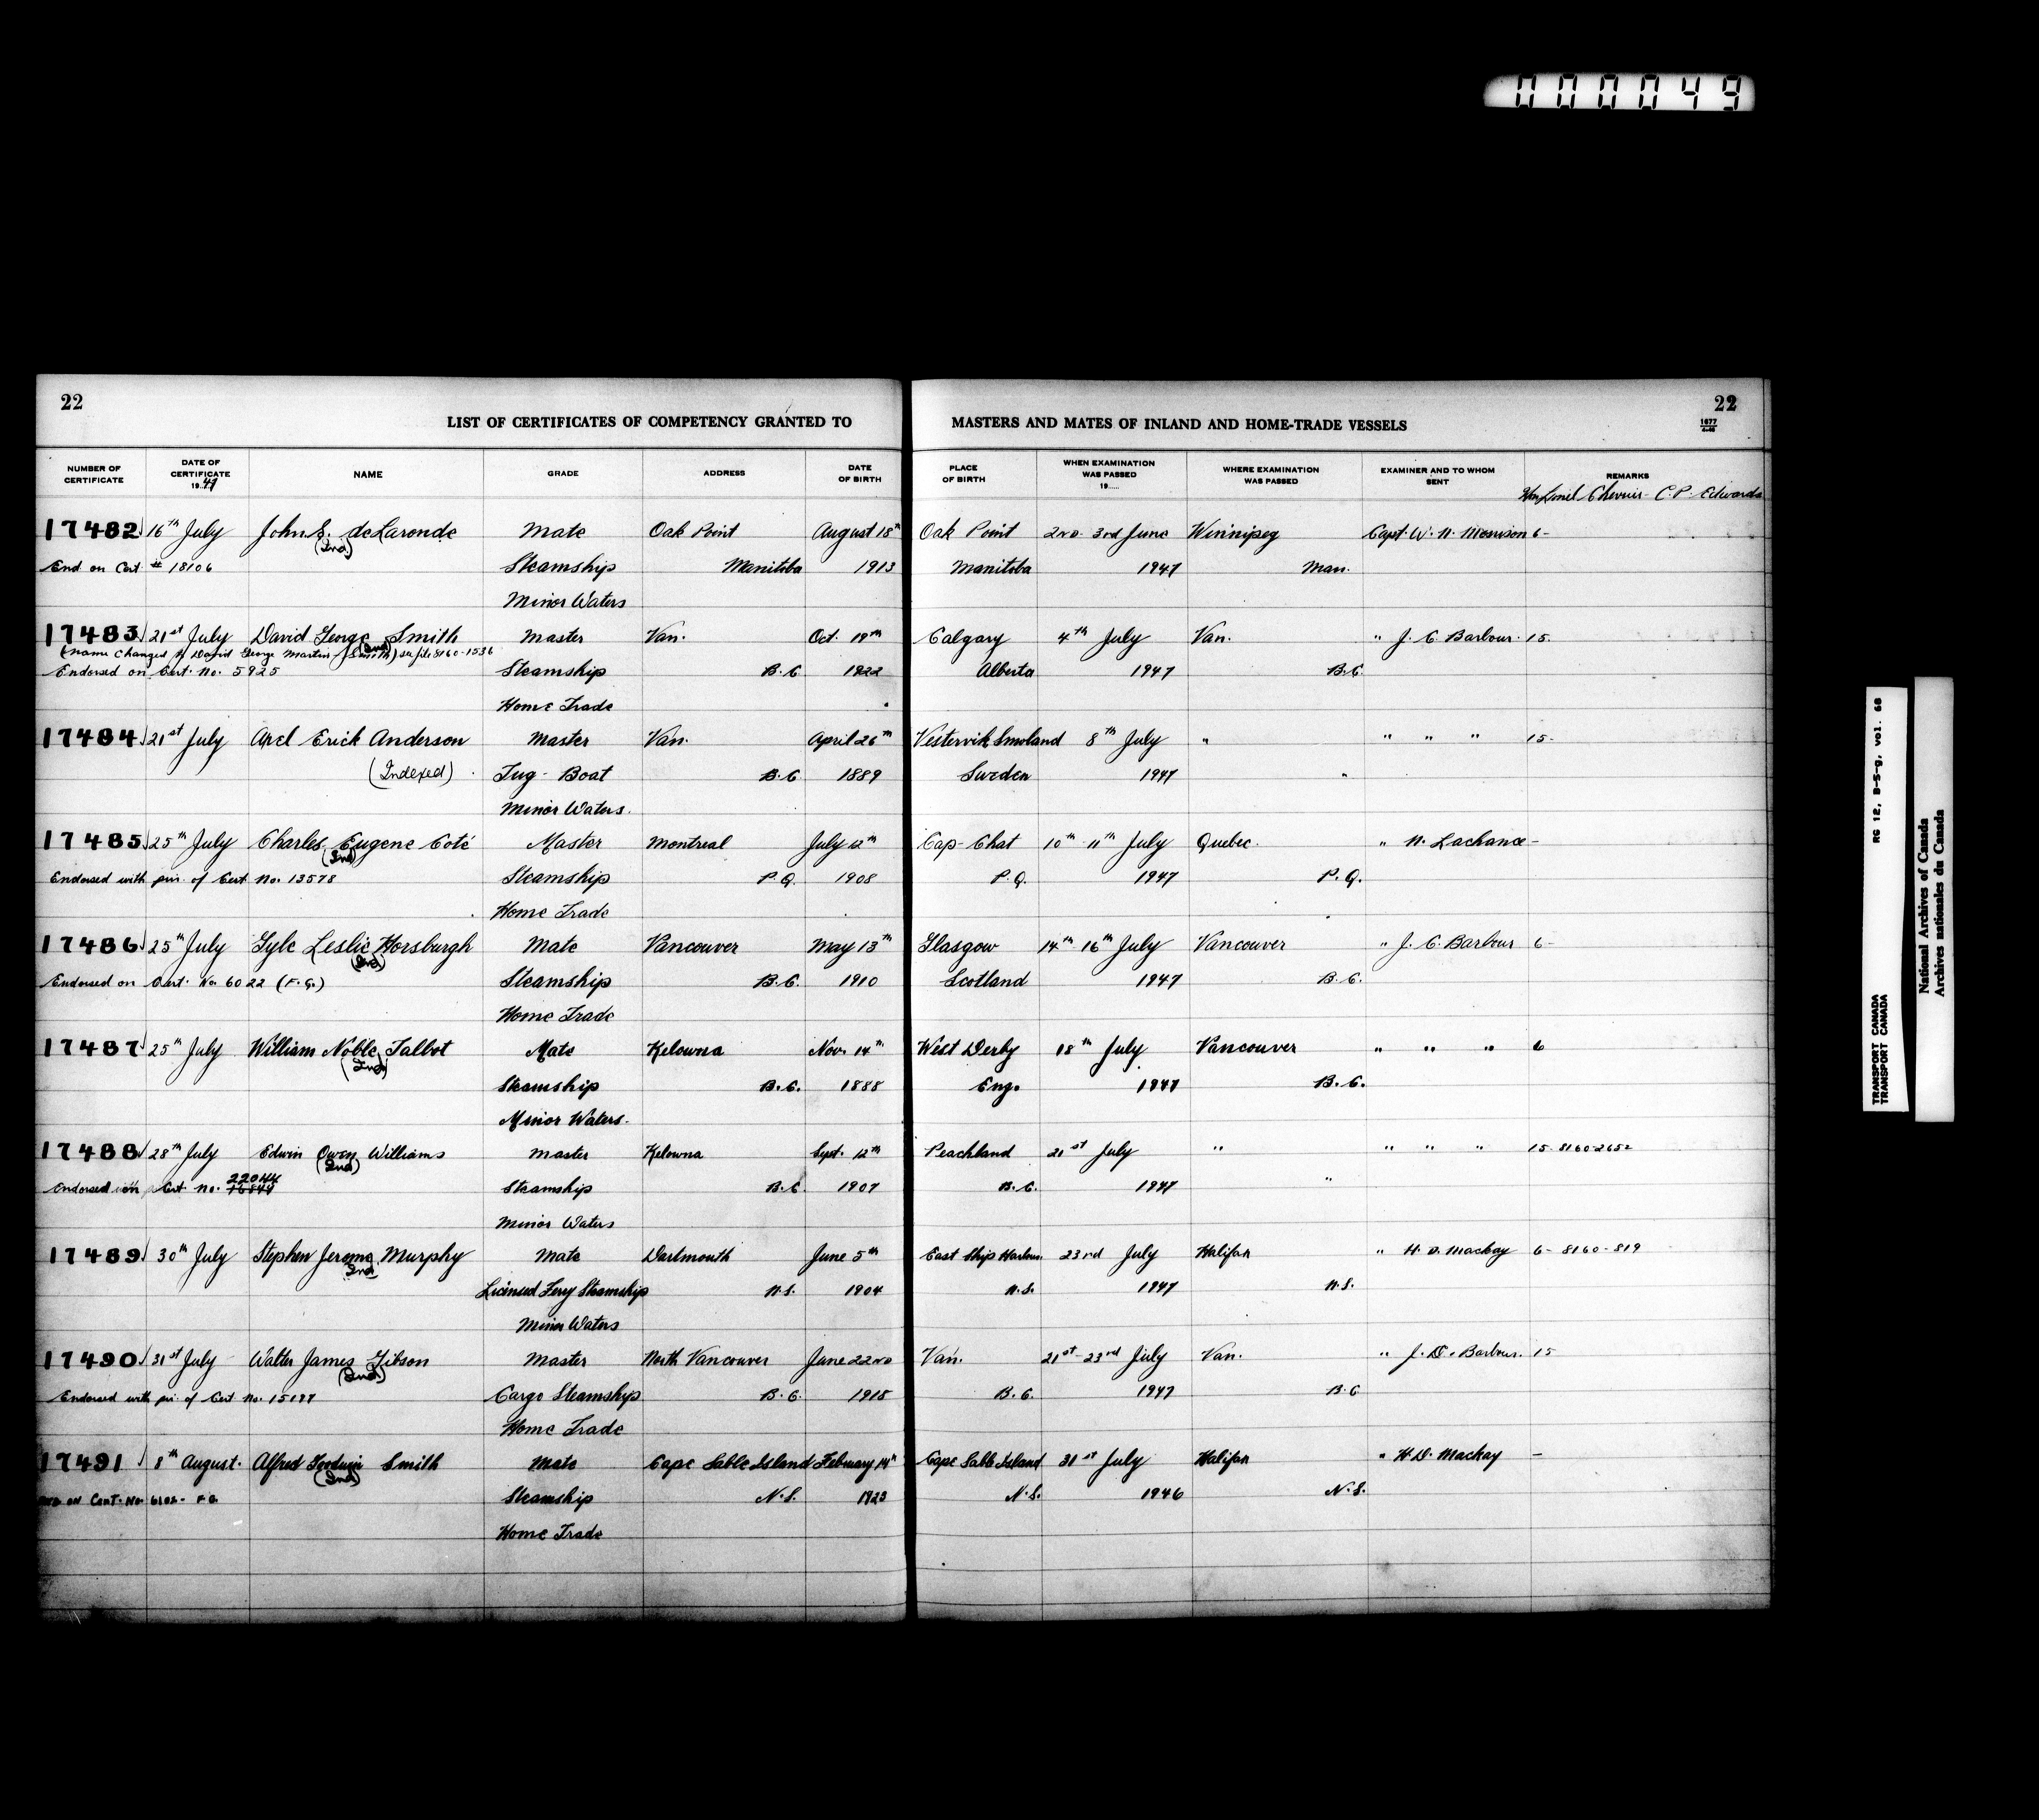 000049
22
22
LIST OF CERTIFICATES OF COMPETENCY GRANTED TO MASTERS AND MATES OF INLAND AND HOME-TRADE VESSELS
1677
NUMBER OF CERTIFICATE DATE OF CERTIFICATE 1947 NAME GRADE ADDRESS DATE OF BIRTH PLACE OF BIRTH WHEN EXAMINATION WAS PASSED 19...... WHERE EXAMINATION WAS PASSED EXAMINER AND TO WHOM SENT REMARKS
C. P. Edwards
17482 16th July John S. deLaronde Mate Oak Point August 18th Oak Point 2nd 3rd June Winnipeg Capt. W. N. Morrison 6-
(Ind)
End on Cert # 18106 Steamship Manitoba 1913 Manitoba 1947 Man.
Minor Waters
17483 21st July David George Smith Master Van. Oct. 19th Calgary 4th July Van. " J. C. Barbour 15.
(Ind)
(name changed to David George Martin Smith) see file 8160-1536
Endorsed on Cert. No. 5925 Steamship B.C. 1922 Alberta 1947 B.C.
Home Trade
17484 21st July Axel Erick Anderson Master Van. April 26th Vestervik Smoland 8th July " " " " 15-
(Indexed) Tug-Boat B.C. 1889 Sweden 1947 "
Minor Waters.
17485 25th July Charles Eugene Coté Master Montreal July 12th Cap-Chat 10th 11th July Quebec. " N. Lachance -
(Ind)
Endorsed with pin. of Cert No. 13578 Steamship P.Q. 1908 P.Q. 1947 P.Q.
Home Trade
17486 25th July Lyle Leslie Horsburgh Mate Vancouver May 13th Glasgow 14th 16th July Vancouver " J. C. Barbour 6-
(Ind)
Endorsed on Cert. No. 6022 (F.G.) Steamship B.C. 1910 Scotland 1947 B.C.
Home Trade
17487 25th July William Noble Talbot Mate Kelowna Nov. 14th West Derby 18th July Vancouver " " " 6
(Ind)
Steamship B.C. 1888 Eng. 1947 B.C.
Minor Waters.
17488 28th July Edwin Owen Williams Master Kelowna Sept. 12th Peachland 21st July " " " " 15-8160-2652
(Ind)
22044
Endorsed on Cert. No. 16844 Steamship B.C. 1907 B.C. 1947 "
Minor Waters
17489 30th July Stephen Jerome Murphy Mate Dartmouth June 5th East Ship Harbour 23rd July Halifax " H. D. Mackay 6- 8160-819
Ind
Licensed Ferry Steamship N.S. 1904 N.S. 1947 N.S.
Minor Waters
17490 31st July Walter James Gibson Master North Vancouver June 22nd Van. 21st-23rd July Van. " J. D. Barbour. 15
(Ind)
Endorsed with pin. of Cert No. 15197 Cargo Steamship B.C. 1915 B.C. 1947 B.C
Home Trade
17491 8th August. Alfred Goodwin Smith Mate Cape Sable Island February 14th Cape Sable Island 31st July Halifax " H. D. Mackay -
(Ind)
End on Cert. No 6102- F.G. Steamship N.S. 1923 N.S. 1946 N.S.
Home Trade
RG 12, B-5-g, vol. 68
TRANSPORT CANADA
TRANSPORT CANADA
National Archives of Canada
Archives nationales du Canada